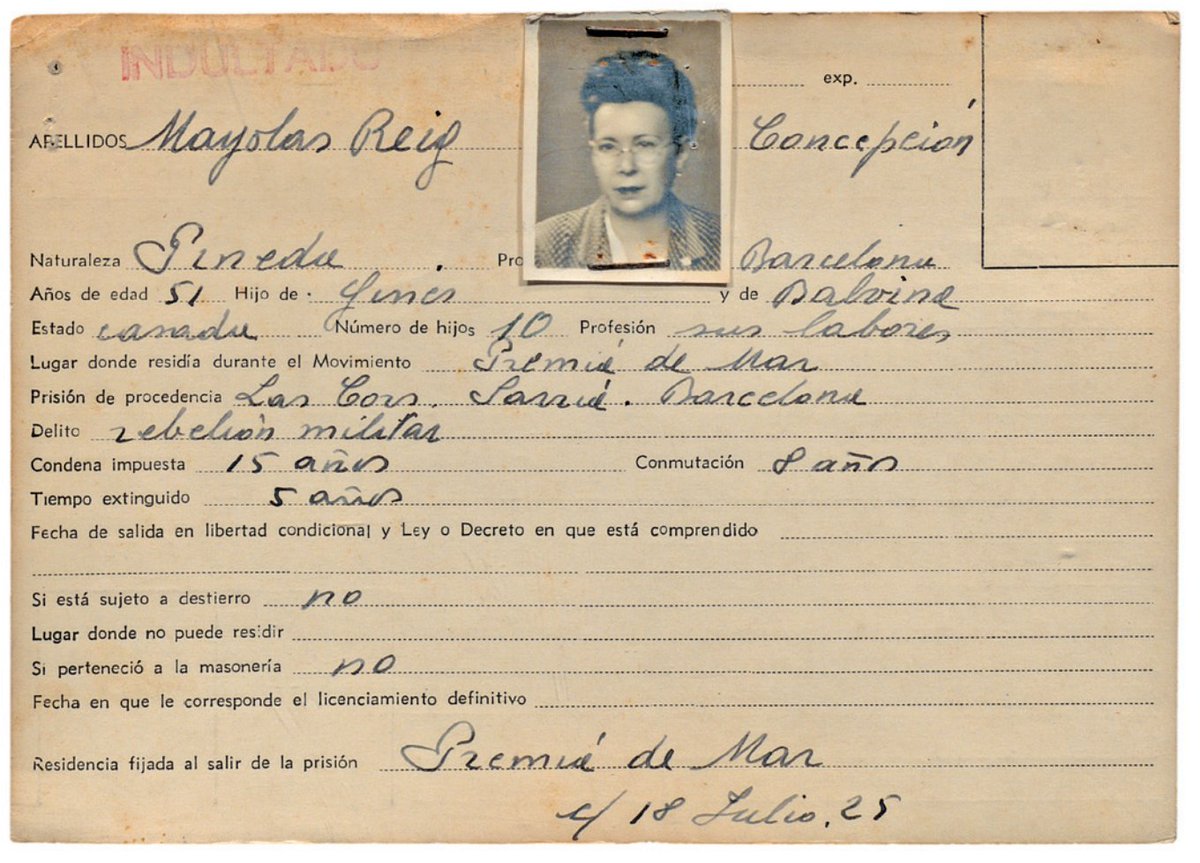 INDULTADO
exp.
APELLIDOS Mayolas Reig Concepción
Naturaleza Pineda Pro Barcelona
Años de edad 51 Hijo de Gines y de Balvina
Estado casada Número de hijos 10 Profesión sus labores
Lugar donde residía durante el Movimiento Premiá de Mar
Prisión de procedencia Las Cors. Sarriá. Barcelona
Delito rebelión militar
Condena impuesta 15 años Conmutación 8 años
Tiempo extinguido 5 años
Fecha de salida en libertad condicional y Ley o Decreto en que está comprendido
Si está sujeto a destierro no
Lugar donde no puede residir
Si perteneció a la masonería no
Fecha en que le corresponde el licenciamiento definitivo
Residencia fijada al salir de la prisión Premiá de Mar
c/ 18 Julio. 25